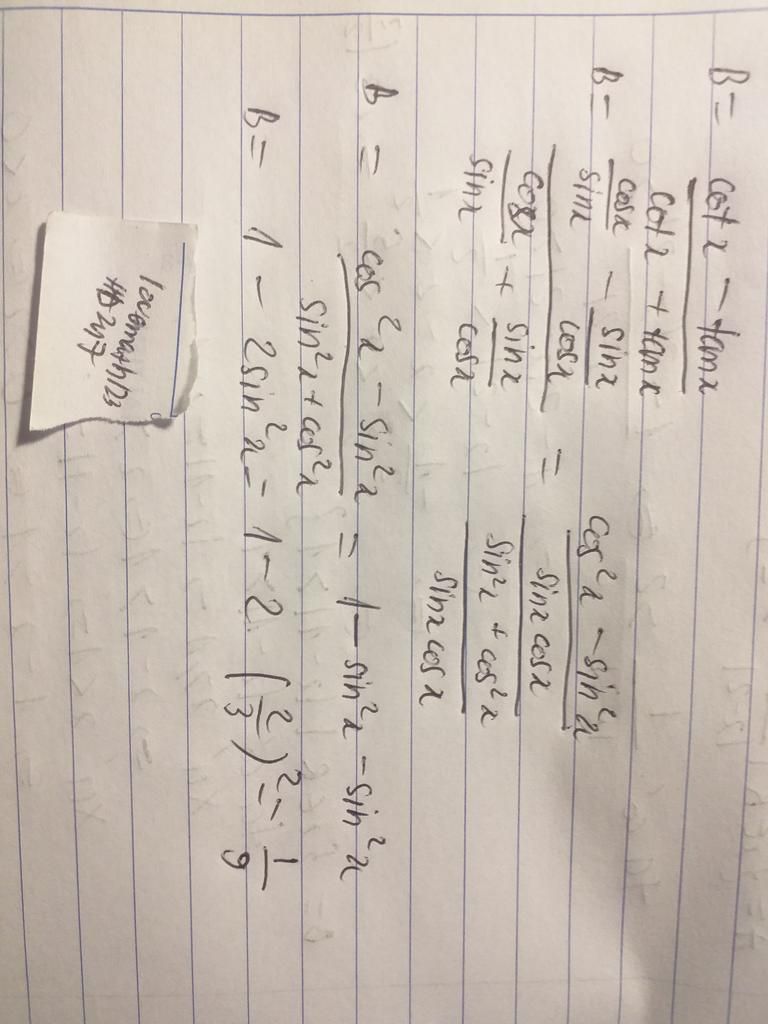 B = (cot x - tan x)/(cot x + tan x)
B = (cosx/sinx - sinx/cosx)/(cosx/sinx + sinx/cosx) = ((cos²x - sin²x)/(sinx cosx))/((sin²x + cos²x)/(sinx cosx))
B = (cos²x - sin²x)/(sin²x + cos²x) = 1 - sin²x - sin²x
B = 1 - 2sin²x = 1 - 2 (2/3)² = 1/9